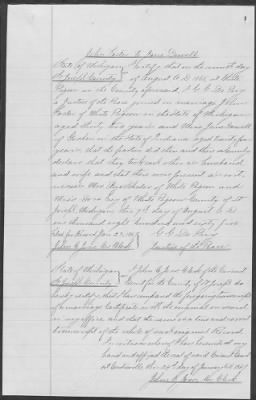 John Foster & Jane Dowell
State of Michigan
St Joseph County I Certify, that on the seventh day
of August A.D. 1865 at White
Pigeon in the County aforesaid, I C. C.
a Justice of the Peace joined in marriage John
Foster of White Pigeon in the State of Michigan
aged thirty two years and Miss Jane Dowell
of Goshen in the State of Indiana aged twenty
years, that the parties did then and there solemnly
declare that they took each other as husband
and wife and that there were present as wit-
nesses Mrs of White Pigeon and
Miss of White Pigeon County of St
Joseph, Michigan this 7th day of August A.D.
one thousand eight hundred and sixty five
Filed for Record Jan 23 1867 C. C.
John C. Joss Clerk Justice of the Peace
State of Michigan
St Joseph County I John C. Joss Clerk of the Circuit
Court for the County of St Joseph do
hereby certify that I have compared the foregoing copy
of marriage certificate with the original on record
in my office and that the same is a true and correct
transcript of the whole of such original Record
In testimony whereof I have hereunto set my
hand and affixed the seal of said Circuit Court
at Centreville this 24th day of January A.D. 1867
John C. Joss Clerk